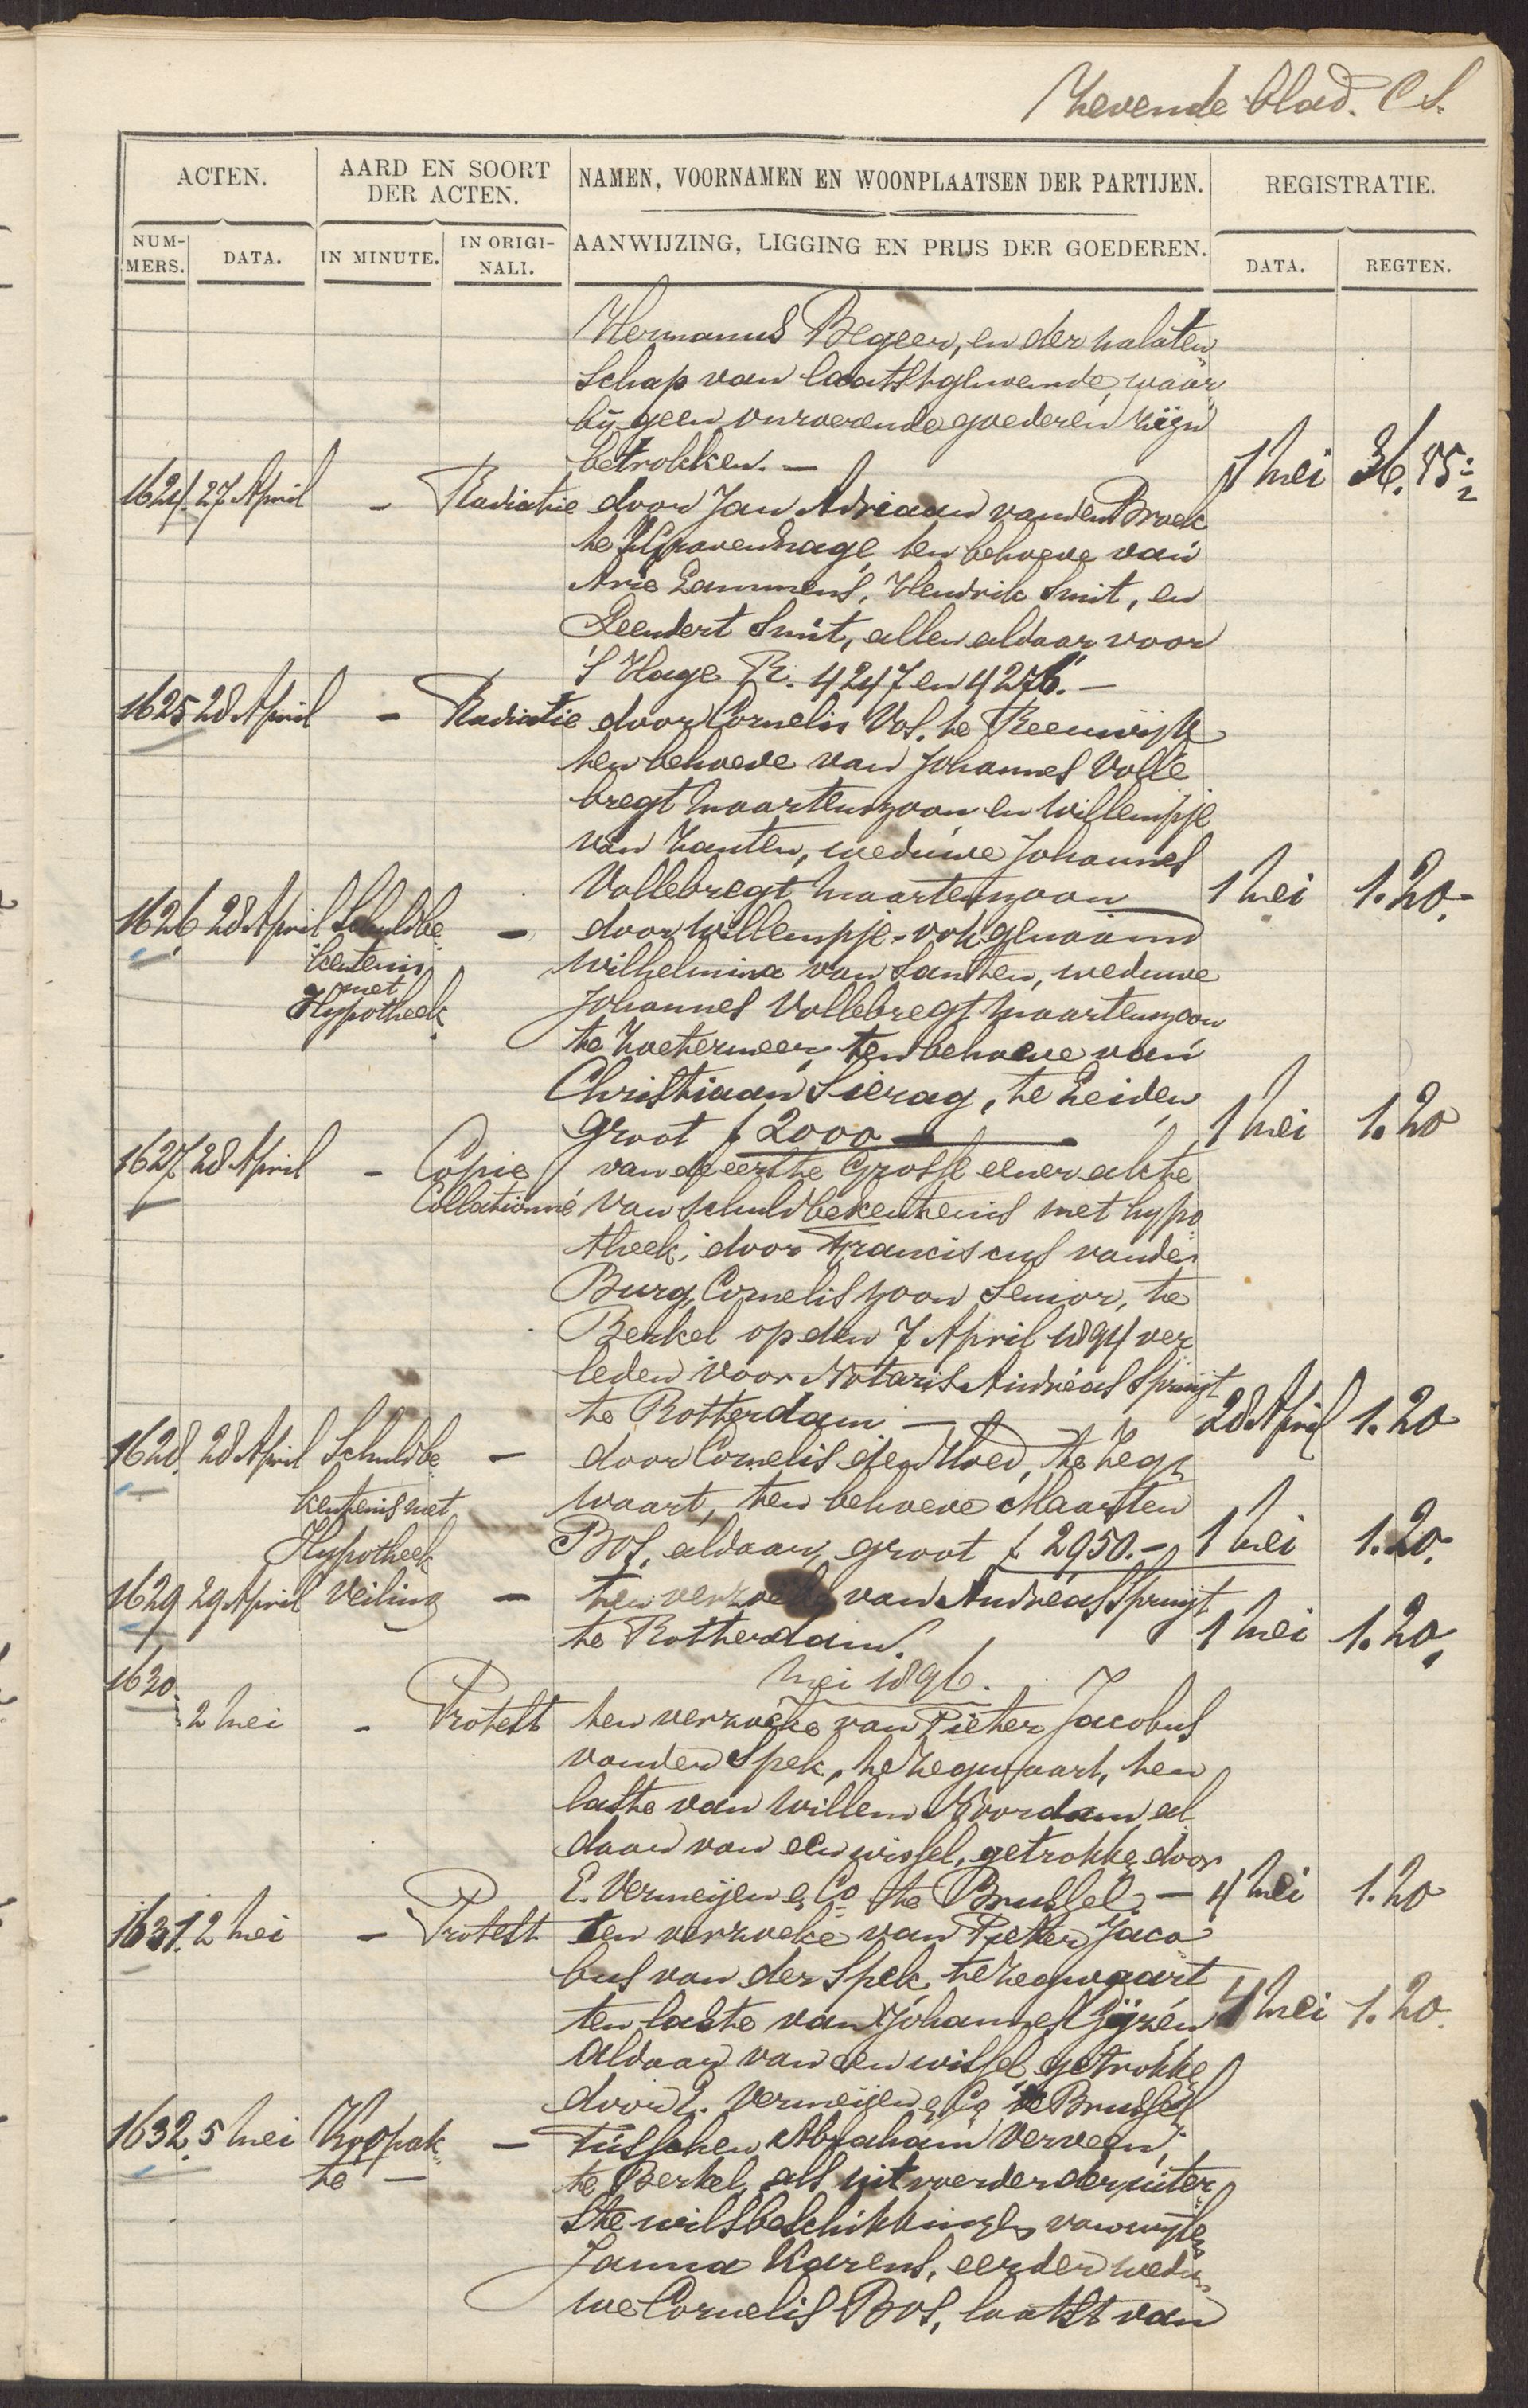 Zevende blad. C S.
ACTEN.
AARD EN SOORT
DER ACTEN.
NAMEN, VOORNAMEN EN WOONPLAATSEN DER PARTIJEN.
REGISTRATIE.
NUM-
MERS.
DATA.
IN MINUTE.
IN ORIGI-
NALI.
AANWIJZING, LIGGING EN PRIJS DER GOEDEREN.
DATA.
REGTEN.
Hermanus Begeer, en der nalaten
schap van laatstgenoemde, waar
bij geen onroerende goederen zijn
betrokken. — 1 Mei 36.85
1624. 27 April - Radiatie door Jan Adriaan van den Broek
te 's Gravenhage, ten behoeve van
Arie Lammens, Hendrik Smit, en
Leendert Smit, allen aldaar voor
's Hage R. 4247 en 4276. —
1625 28 April - Radiatie door Cornelis Vos, te Reeuwijk
ten behoeve van Johannes Volle
bregt Maartenszoon en Willempje
van Zanten, weduwe Johannes
Vollebregt Maartenszoon 1 Mei 1.20.
1626 28 April Schuldbe - door Willempje - ook genaamd
kentenis Wilhelmina van Santen, weduwe
met
Hypotheek Johannes Vollebregt Maartenszoon
te Zoetermeer, ten behoeve van
Christiaan Sierag, te Leiden
groot f 2000 — 1 Mei 1.20
1627. 28 April - Copie van de eerste Grosse eener akte
Collationné van schuldbekentenis met hypo
theek, door Franciscus van der
Burg, Corneliszoon Senior, te
Berkel op den 7 April 1894 ver
leden voor Notaris Andréas Spruijt
te Rotterdam — 28 April 1.20
1628. 28 April Schuldbe - door Cornelis den Hoed, te Zegt
kentenis met waart, ten behoeve Maarten
Hypotheek Bos, aldaar, groot f 2950.- 1 Mei 1.20.
1629 29 April Veiling - ten verzoeke van Andréas Spruijt
te Rotterdam. 1 Mei 1.20.
1630. Mei 1896.
2 Mei - Protest ten verzoeke van Pieter Jacobus
van der Spek, te Zegwaart, ten
laste van Willem Noordam al
daar van een wissel, getrokke door
E. Vermeijen & Co te Brussel, — 4 Mei 1.20
1631. 2 Mei - Protest ten verzoeke van Pieter Jaco
bus van der Spek, te Zegwaart
ten laste van Johannes 4 Mei 1.20.
aldaar van een wissel getrokke
door E. Vermeijen & Co te Brussel
1632. 5 Mei Koopak - Tusschen Abraham Verveen,
te — te Berkel, als uitvoerder der uiter
ste wilsbeschikkingen van wijlen
Janna Karens, eerder wedu
we Cornelis Bos, laatst van